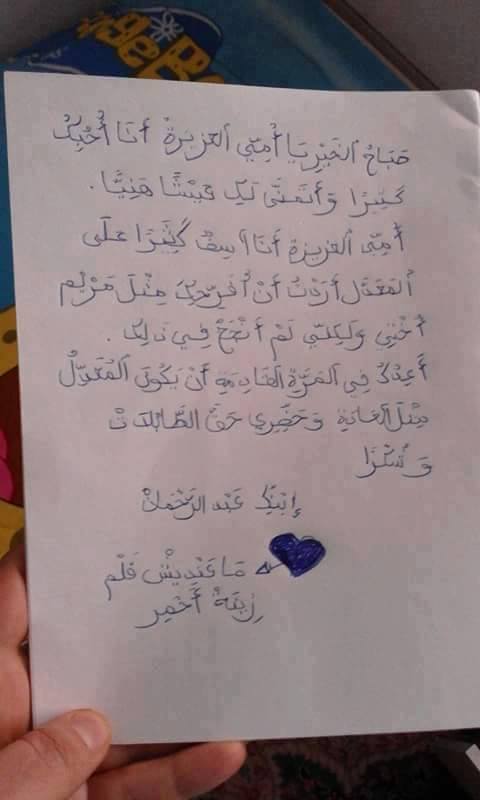 صَبَاحُ الخَيْرِ يَا أُمِّي العَزِيزَةُ أَنَا أُحِبُّكِ
كَثِيرًا وَأَتَمَنَّى لَكِ عَيْشًا هَنِيًّا.
أُمِّي العَزِيزة أَنَا آسِفٌ كَثِيرًا عَلَى
المَعَدَّل أَرَدْتُ أَنْ أُفَرِّحَكِ مِثْلَ مَرْيَم
أُخْتِي وَلَكِنَّنِي لَمْ أَنْجَحْ فِي ذَلِكَ.
أَعِدُكِ فِي المَرَّةِ القَادِمَةِ أَنْ يَكُونَ المُعَدَّلُ
مِثْلَ وَحَضِّرِي حَقَّ
وَشُكْرًا
إِبْنُكِ عَبْد الرَّحْمَان
مَا عَنْدِيشْ قَلَم
أَحْمِر